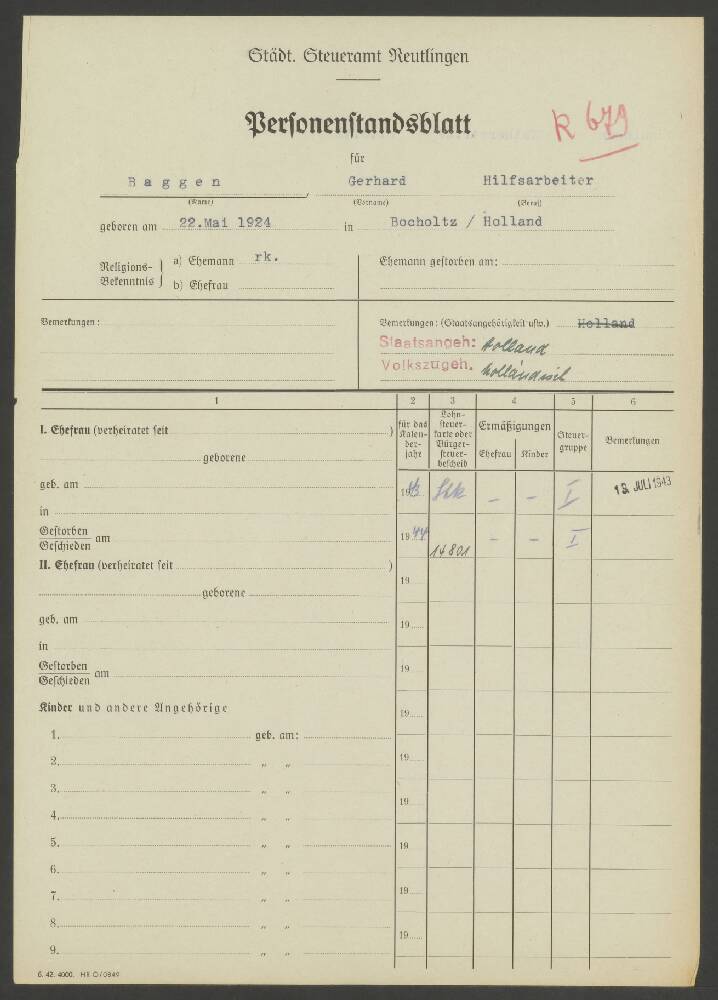 Städt. Steueramt Reutlingen
Personenstandsblatt
R 679
für
Baggen Gerhard Hilfsarbeiter
(Name) (Vorname) (Beruf)
geboren am 22.Mai 1924 in Bocholtz / Holland
Religions-Bekenntnis a) Ehemann rk. Ehemann gestorben am:
b) Ehefrau
Bemerkungen: Bemerkungen: (Staatsangehörigkeit usw.) Holland
Staatsangeh: Holland
Volkszugeh. holländisch
1 2 3 4 5 6
für das Kalenderjahr Lohnsteuerkarte oder Bürgersteuerbescheid Ermäßigungen Ehefrau Kinder Steuergruppe Bemerkungen
I. Ehefrau (verheiratet seit )
geborene
geb. am 1943 Stk - - I 19. JULI 1943
in
Gestorben
Geschieden am 1944 14801 - - I
II. Ehefrau (verheiratet seit )
19
geborene
geb. am 19
in
Gestorben
Geschieden am 19
Kinder und andere Angehörige 19
1. geb. am:
2. " " 19
3. " "
4. " " 19
5. " " 19
6. " "
7. " " 19
8. " " 19
9. " "
6. 42. 4000. HR O/0849